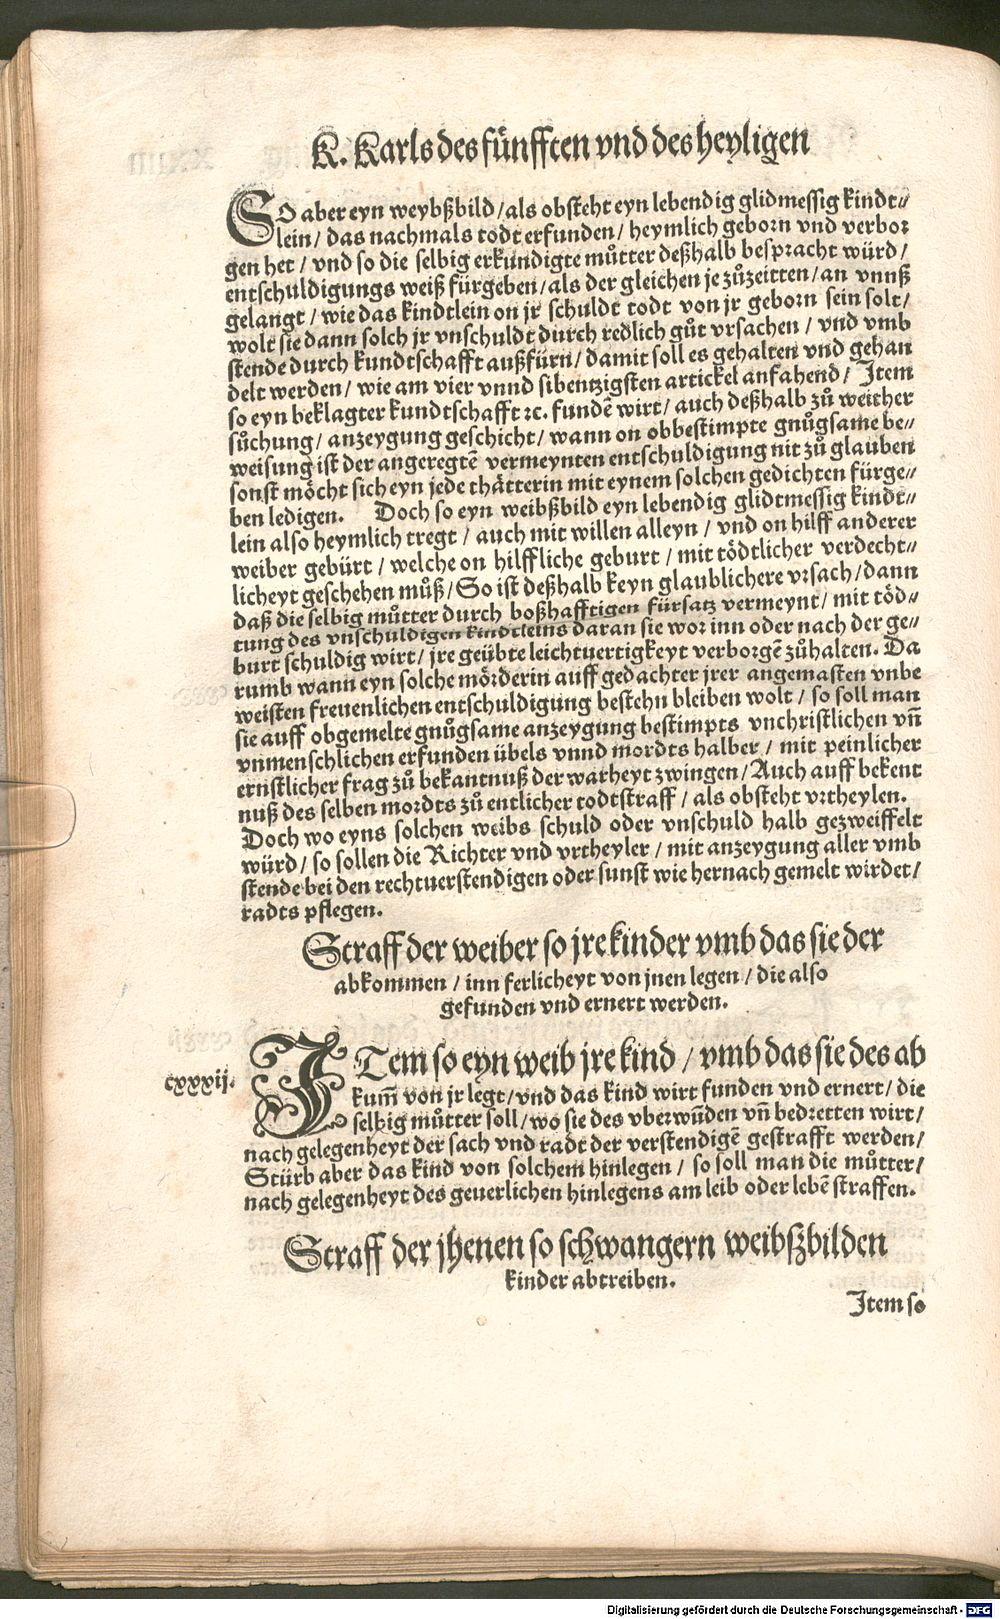 K. Karls des fünfften vnd des heyligen
SO aber eyn weybßbild/als obsteht eyn lebendig glidmessig kindt⸗
lein/ das nachmals todt erfunden/ heymlich geborn vnd verbor
gen het/ vnd so die selbig erkündigte můtter deßhalb bespracht würd/
entschuldigungs weiß fürgeben/als der gleichen je zůzeitten/an vnnß
gelangt/ wie das kindtlein on jr schuldt todt von jr geborn sein solt/
wolt sie dann solch jr vnschuldt durch redlich gůt vrsachen/ vnd vmb
stende durch kundtschafft außfürn/ damit soll es gehalten vnd gehan
delt werden/ wie am vier vnnd sibentzigsten artickel anfahend/ Item
so eyn beklagter kundtschafft ꝛc. fundē wirt/ auch deßhalb zů weither
sůchung/ anzeygung geschicht/ wann on obbestimpte gnůgsame be⸗
weisung ist der angeregtē vermeynten entschuldigung nit zů glauben
sonst möcht sich eyn jede thätterin mit eynem solchen gedichten fürge⸗
ben ledigen. Doch so eyn weibßbild eyn lebendig glidtmessig kindt⸗
lein also heymlich tregt/ auch mit willen alleyn/ vnd on hilff anderer
weiber gebürt/ welche on hilffliche geburt/ mit tödtlicher verdecht⸗
licheyt geschehen můß/ So ist deßhalb keyn glaublichere vrsach/ dann
daß die selbig můtter durch boßhafftigen fürsatz vermeynt/ mit töd⸗
tung des vnschuldigen kindtleins daran sie vor inn oder nach der ge⸗
burt schuldig wirt/ jre geübte leichtuertigkeyt verborgē zůhalten. Da
rumb wann eyn solche mörderin auff gedachter jrer angemasten vnbe
weisten freuenlichen entschuldigung bestehn bleiben wolt/ so soll man
sie auff obgemelte gnůgsame anzeygung bestimpts vnchristlichen vn̄
vnmenschlichen erfunden übels vnnd mordts halber/ mit peinlicher
ernstlicher frag zů bekantnuß der warheyt zwingen/ Auch auff bekent
nuß des selben mordts zů entlicher todtstraff/ als obsteht vrtheylen.
Doch wo eyns solchen weibs schuld oder vnschuld halb gezweiffelt
würd/ so sollen die Richter vnd vrtheyler/ mit anzeygung aller vmb
stende bei den rechtuerstendigen oder sunst wie hernach gemelt wirdet/
radts pflegen.
Straff der weiber so jre kinder vmb das sie der
abkommen/ inn ferlicheyt von jnen legen/ die also
gefunden vnd ernert werden.
cxxxij.
ITem so eyn weib jre kind/ vmb das sie des ab
kum̄ von jr legt/ vnd das kind wirt funden vnd ernert/ die
selbig můtter soll/ wo sie des vberwūden vn̄ bedretten wirt/
nach gelegenheyt der sach vnd radt der verstendigē gestrafft werden/
Stürb aber das kind von solchem hinlegen/ so soll man die můtter/
nach gelegenheyt des geuerlichen hinlegens am leib oder lebē straffen.
Straff der jhenen so schwangern weibßbilden
kinder abtreiben.
Item so
Digitalisierung gefördert durch die Deutsche Forschungsgemeinschaft - DFG